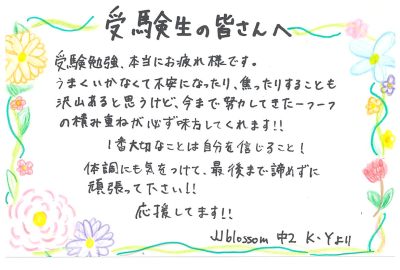 受験生の皆さんへ
受験勉強、本当にお疲れ様です。
うまくいかなくて不安になったり、焦ったりすることも
沢山あると思うけど、今まで努力してきた一つ一つ
の積み重ねが必ず味方してくれます!!
1番大切なことは自分を信じること!
体調にも気をつけて、最後まで諦めずに
頑張って下さい!!
応援してます!!
blossom 中2 K・Yより